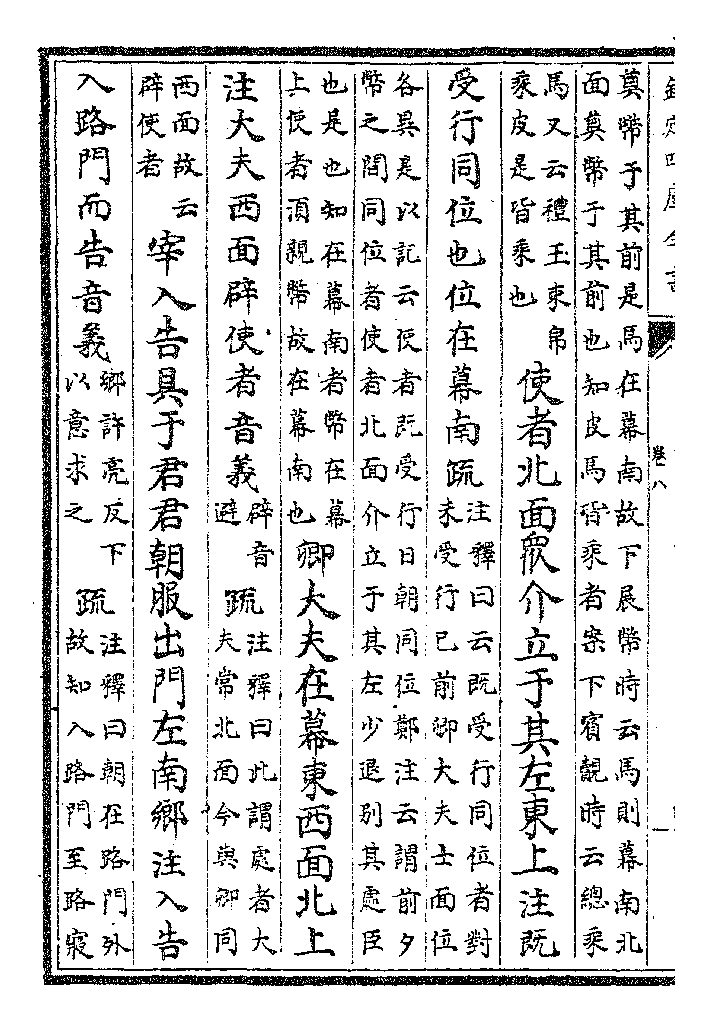 欽定四庫全書
卷八
奠幣于其前是馬在幕南故下展幣時云馬則幕南北
面奠幣于其前也知皮馬皆乘者案下賓覿時云總乘
馬又云禮玉束帛
乘皮是皆乘也
使者北面眾介立于其左東上注既
受行同位也位在幕南疏
注釋曰云既受行同位者對
未受行已前卿大夫士面位
各異是以記云使者既受行日朝同位鄭注云謂前夕
幣之間同位者使者北面介立于其左少退别其處臣
也是也知在幕南者幣在幕
上使者湏親幣故在幕南也
卿大夫在幕東西面北上
注大夫西面辟使者音義
辟音
避
疏
注釋曰此謂處者大
夫常北面今與卿同
西面故云
辟使者
宰入告具于君君朝服出門左南鄉注入告
入路門而告音義
鄉許亮反下
以意求之
疏
注釋曰朝在路門外
故知入路門至路寢